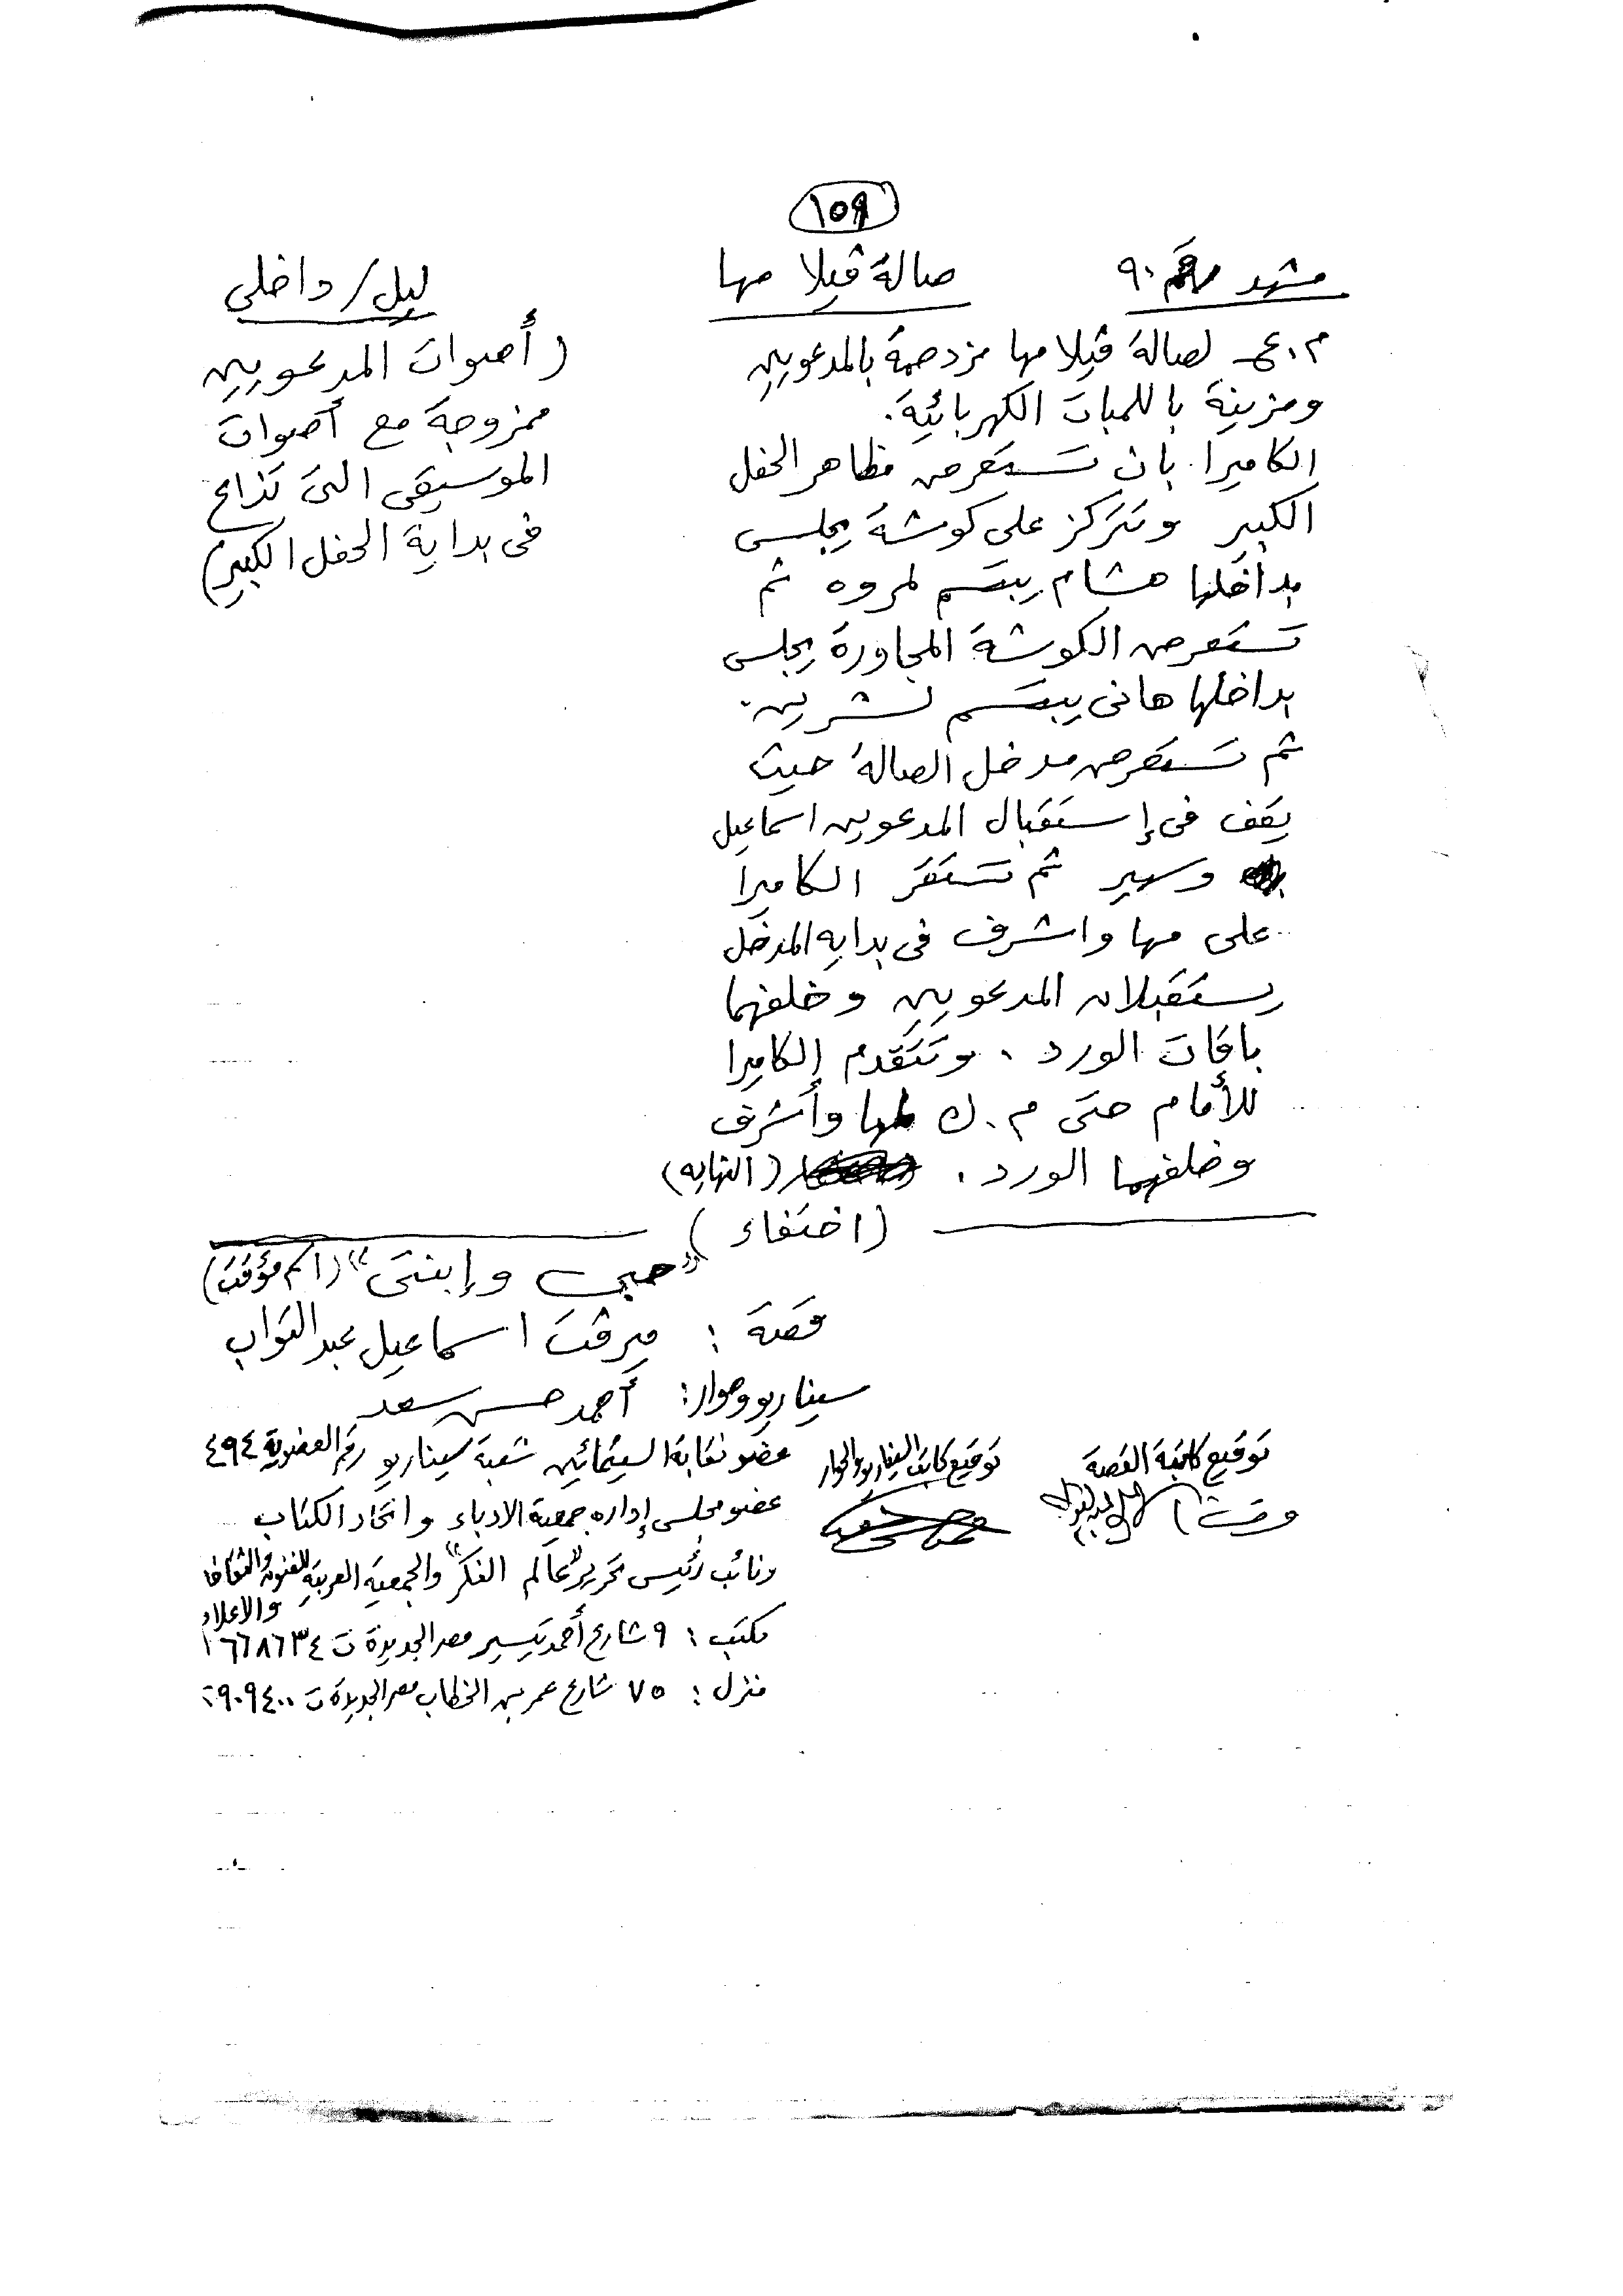 ١٥٩
مشهد رقم ٩٠
صالة ڤيلا مها
ليل/داخلى
م.ع لصالة ڤيلا مها مزدحمة بالمدعوين
ومزينة باللمبات الكهربائية.
الكاميرا بان تستعرض مظاهر الحفل
الكبير وتتركز على كوشة يجلس
بداخلها هشام يبتسم لمروه ثم
تستعرض الكوشة المجاورة يجلس
بداخلها هانى يبتسم لشرين.
ثم تستعرض مدخل الصالة حيث
يقف فى إستقبال المدعوين اسماعيل
وسهير ثم تستقر الكاميرا
على مها واشرف فى بدايه المدخل
يستقبلان المدعوين وخلفهما
باقات الورد. وتتقدم الكاميرا
للأمام حتى م.ك لمها وأشرف
وخلفهما الورد. (النهايه)
(أصوات المدعوين
ممزوجة مع أصوات
الموسيقى التى تذاع
فى بداية الحفل الكبير)
(اختفاء)
"حبى وإبنتى" (اسم مؤقت)
قصة: ميرڤت اسماعيل عبد التواب
سيناريو وحوار: أحمد حسن سعد
عضو نقابة السينمائيين شعبة سيناريو رقم العضوية ٤٩٤
عضو مجلس إداره جمعية الادباء واتحاد الكتاب
ونائب رئيس تحرير "عالم الفكر" والجمعية العربية للفنون والثقافة
والاعلام
مكتب: ٩ شارع أحمد تيسير مصر الجديدة ت ٦٦٨٦٣٤
منزل: ٧٥ شارع عمر بن الخطاب مصر الجديدة ت ٩٠٩٤٠٠
توقيع كاتب السيناريو والحوار
توقيع كاتبة القصة